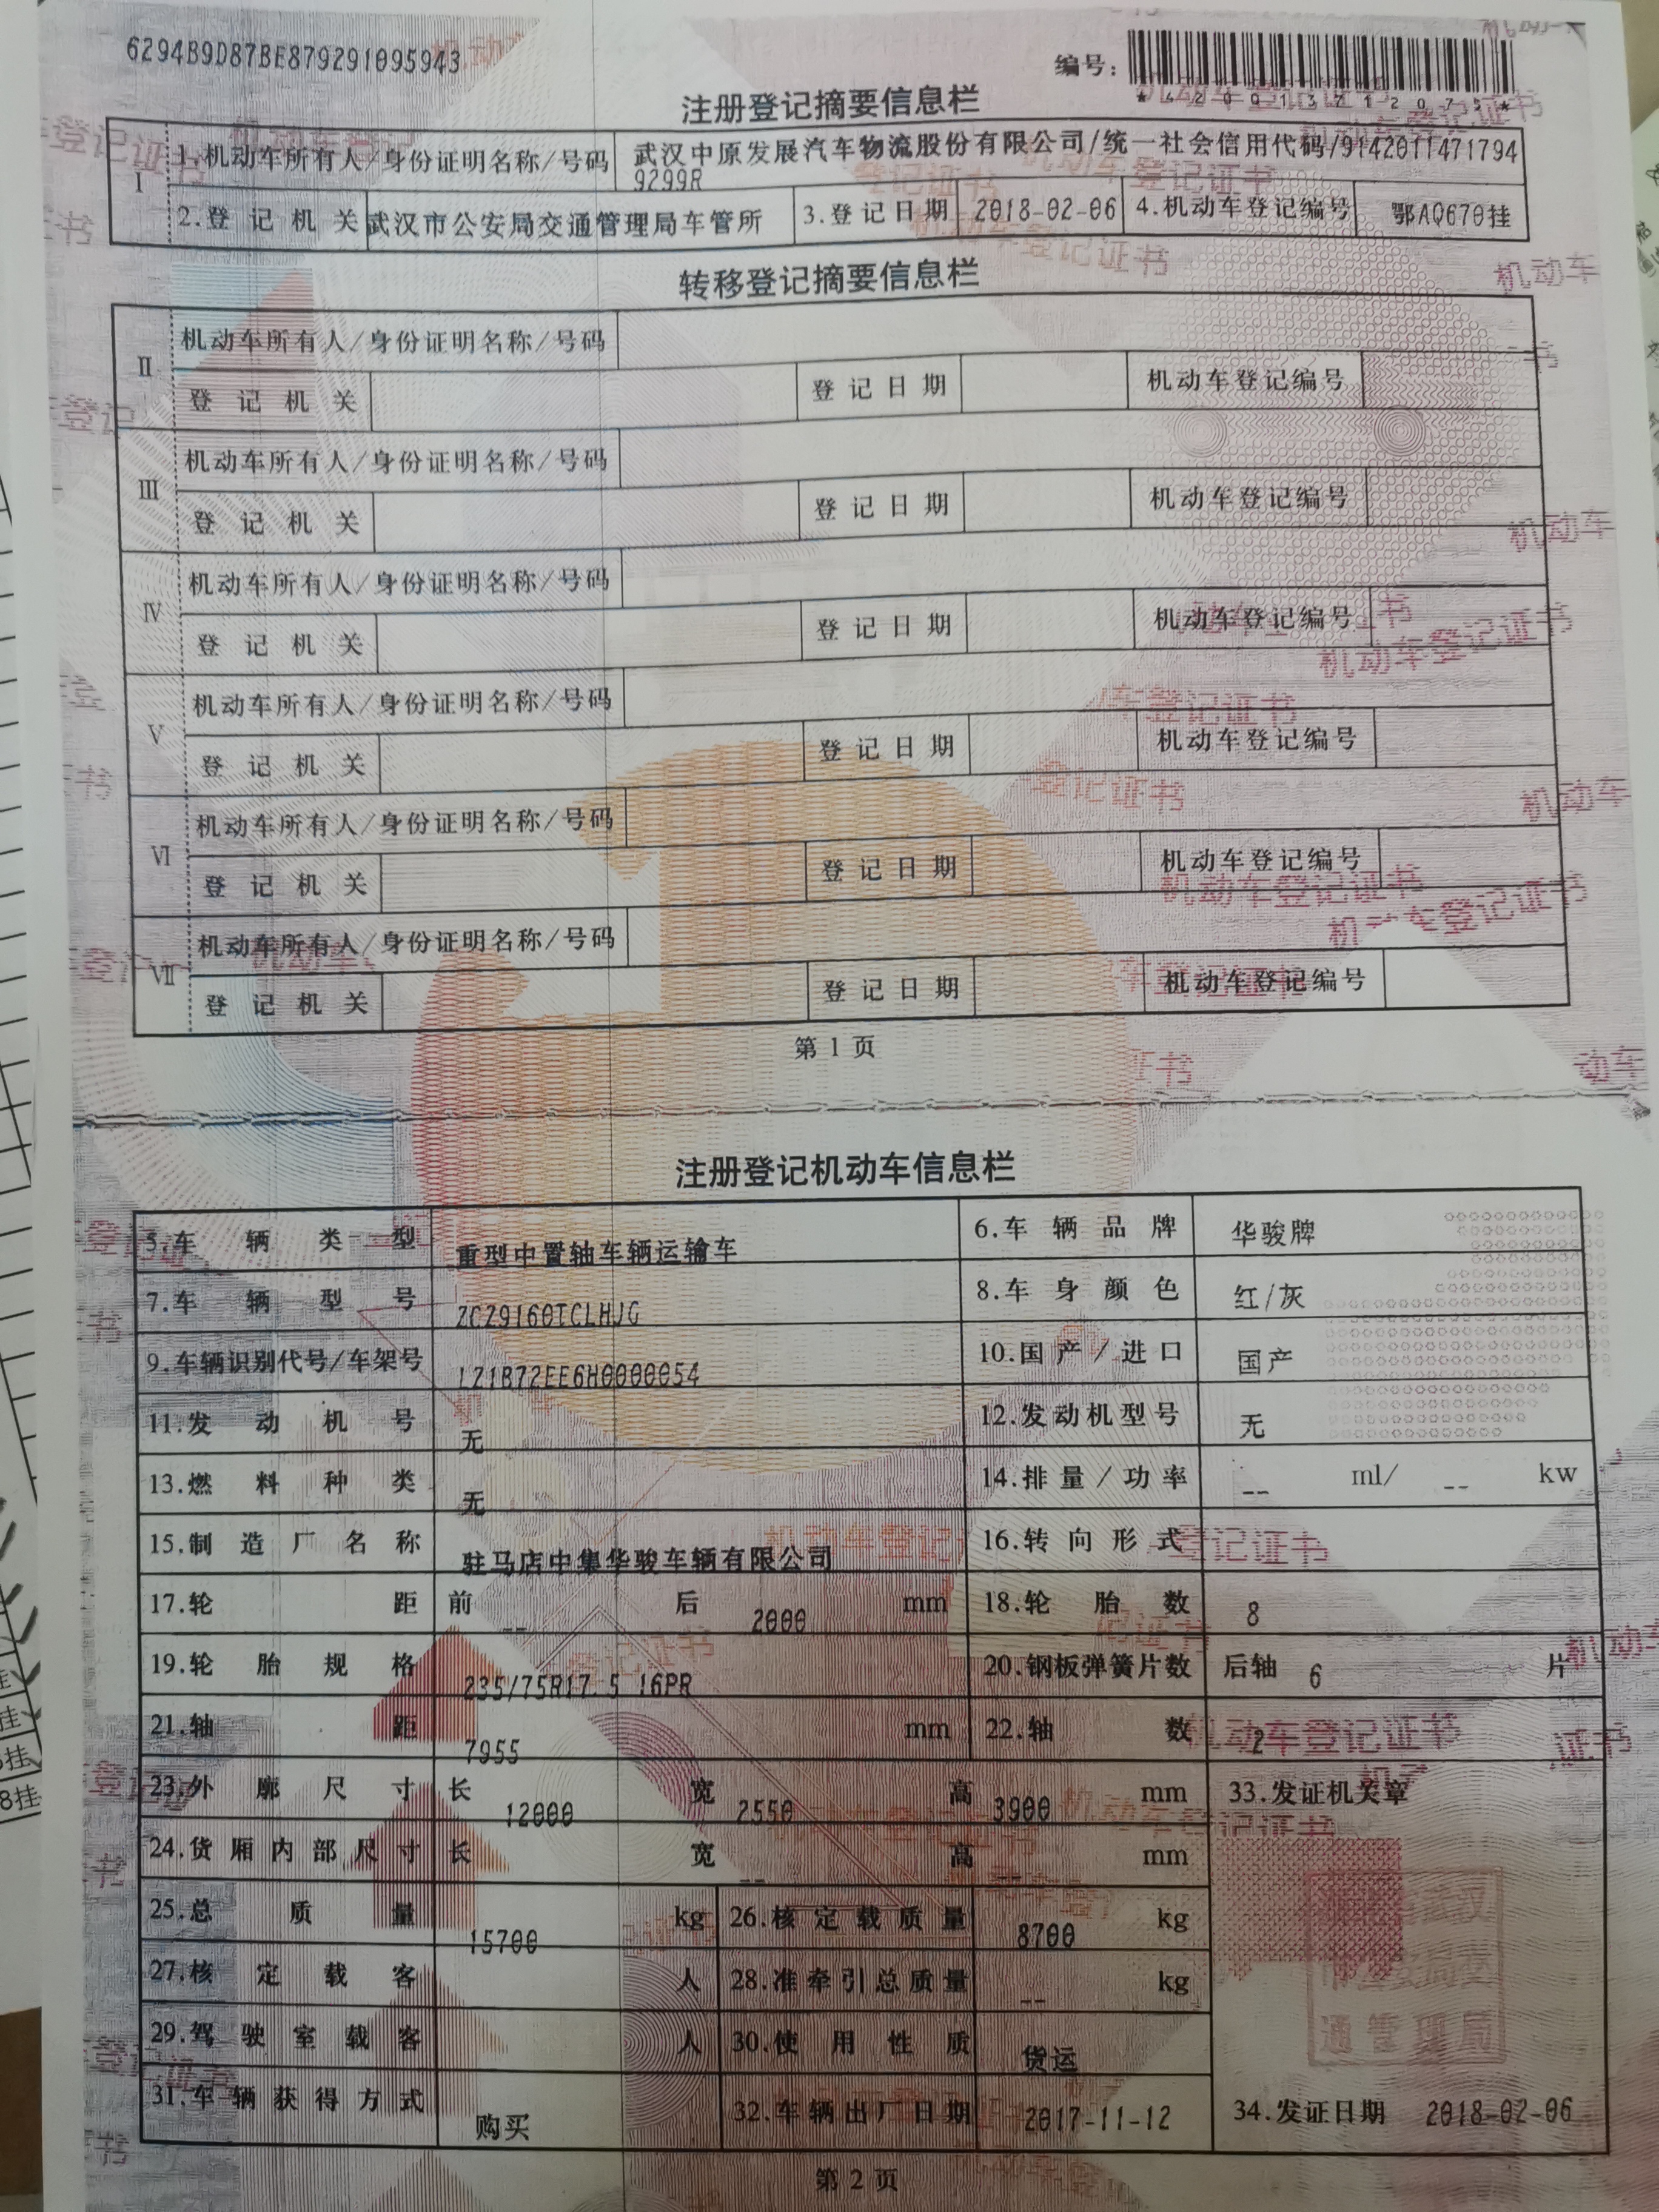 6294B9D87BE879291095943
编号：
*420013712075*
注册登记摘要信息栏
Ⅰ 1.机动车所有人/身份证明名称/号码 武汉中原发展汽车物流股份有限公司/统一社会信用代码/91420114717949299R
2.登记机关 武汉市公安局交通管理局车管所 3.登记日期 2018-02-06 4.机动车登记编号 鄂AQ670挂
转移登记摘要信息栏
Ⅱ 机动车所有人/身份证明名称/号码
登记机关 登记日期 机动车登记编号
Ⅲ 机动车所有人/身份证明名称/号码
登记机关 登记日期 机动车登记编号
Ⅳ 机动车所有人/身份证明名称/号码
登记机关 登记日期 机动车登记编号
Ⅴ 机动车所有人/身份证明名称/号码
登记机关 登记日期 机动车登记编号
Ⅵ 机动车所有人/身份证明名称/号码
登记机关 登记日期 机动车登记编号
Ⅶ 机动车所有人/身份证明名称/号码
登记机关 登记日期 机动车登记编号
第 1 页
注册登记机动车信息栏
5.车辆类型 重型中置轴车辆运输车 6.车辆品牌 华骏牌
7.车辆型号 ZCZ9160TCLHJG 8.车身颜色 红/灰
9.车辆识别代号/车架号 LZ1B72EE6H0000054 10.国产/进口 国产
11.发动机号 无 12.发动机型号 无
13.燃料种类 无 14.排量/功率 -- ml/ -- kw
15.制造厂名称 驻马店中集华骏车辆有限公司 16.转向形式
17.轮距 前 -- 后 2000 mm 18.轮胎数 8
19.轮胎规格 235/75R17.5 16PR 20.钢板弹簧片数 后轴 6 片
21.轴距 7955 mm 22.轴数 2
23.外廓尺寸 长 12000 宽 2550 高 3900 mm 33.发证机关章
24.货厢内部尺寸 长 宽 -- 高 -- mm
25.总质量 15700 kg 26.核定载质量 8700 kg
27.核定载客 人 28.准牵引总质量 -- kg
29.驾驶室载客 人 30.使用性质 货运
通管理局
31.车辆获得方式 购买 32.车辆出厂日期 2017-11-12 34.发证日期 2018-02-06
第 2 页